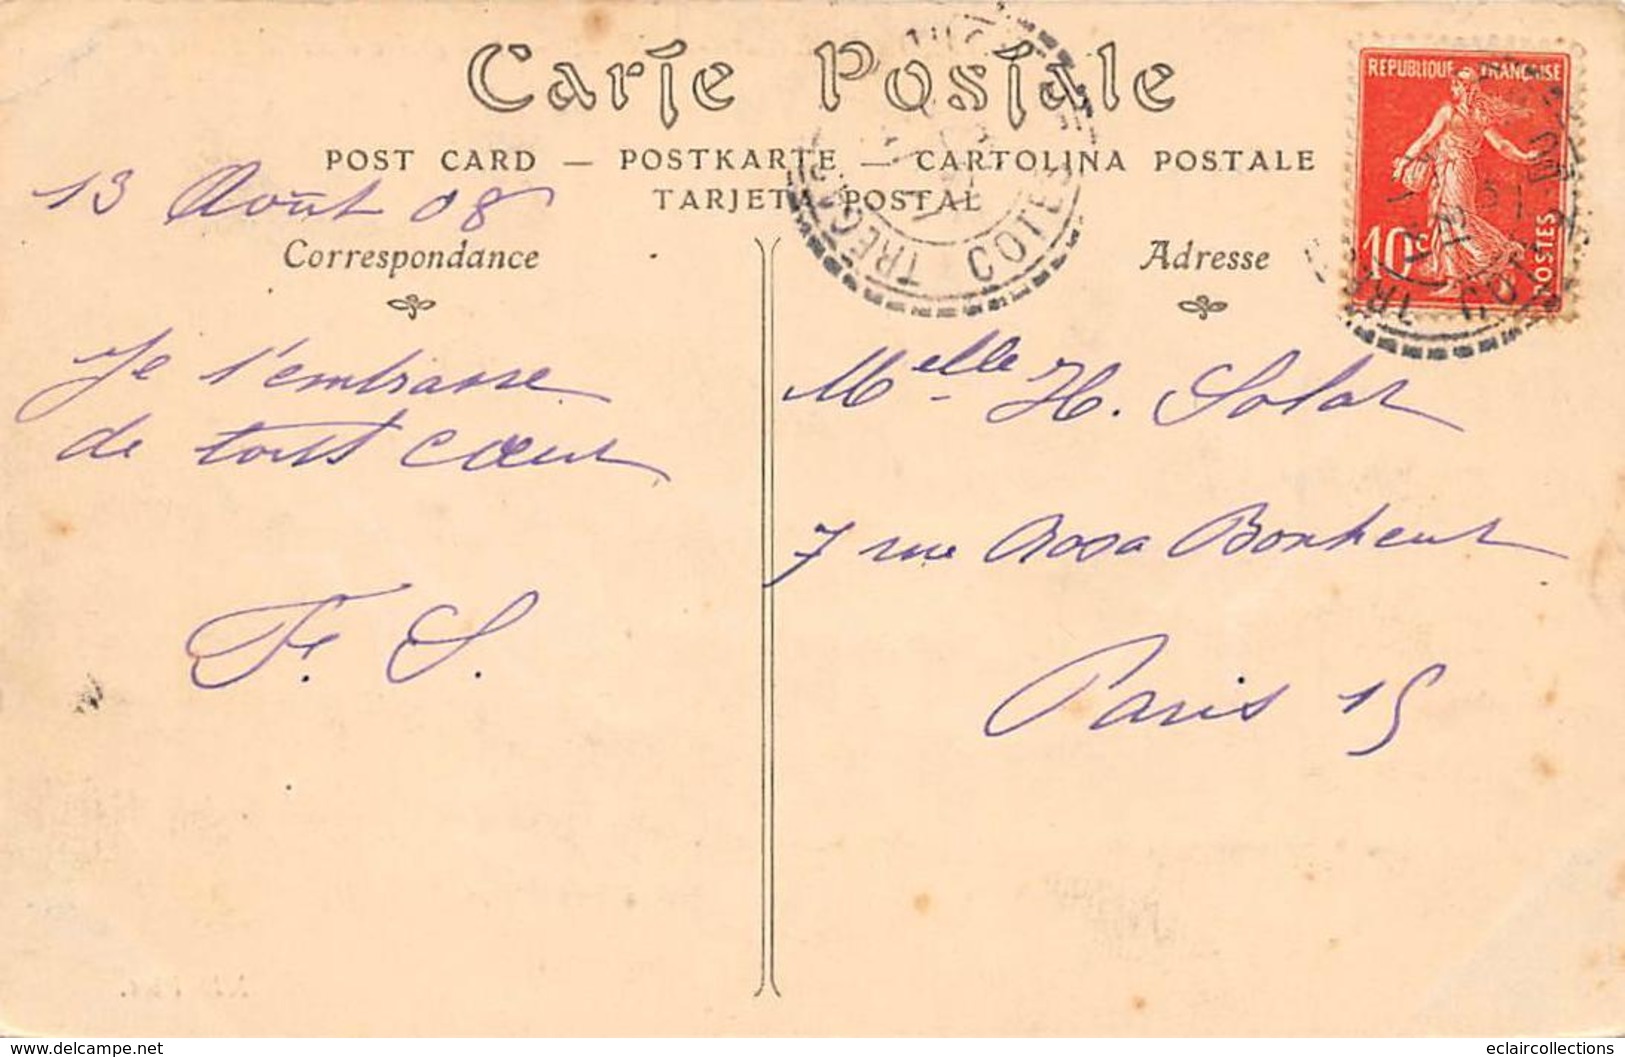 Carte Postale
POST CARD — POSTKARTE — CARTOLINA POSTALE
TARJETA POSTAL
13 Août 08
Correspondance
Je t'embrasse
de tout cœur
F. S.
Adresse
REPUBLIQUE FRANÇAISE
10c
POSTES
TREG
COTES
TRE
Melle H. Solat
7 rue Rosa Bonheur
Paris 15
www.delcampe.net
eclaircollections